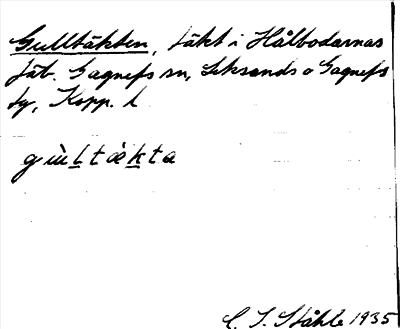 Gulltäkten, täkt i Hålbodarnas
fäb. Gagnefs sn, Leksands o Gagnefs
tg, Kopp. l
gùl̲tàk̲ta
C. I. Ståhle 1935